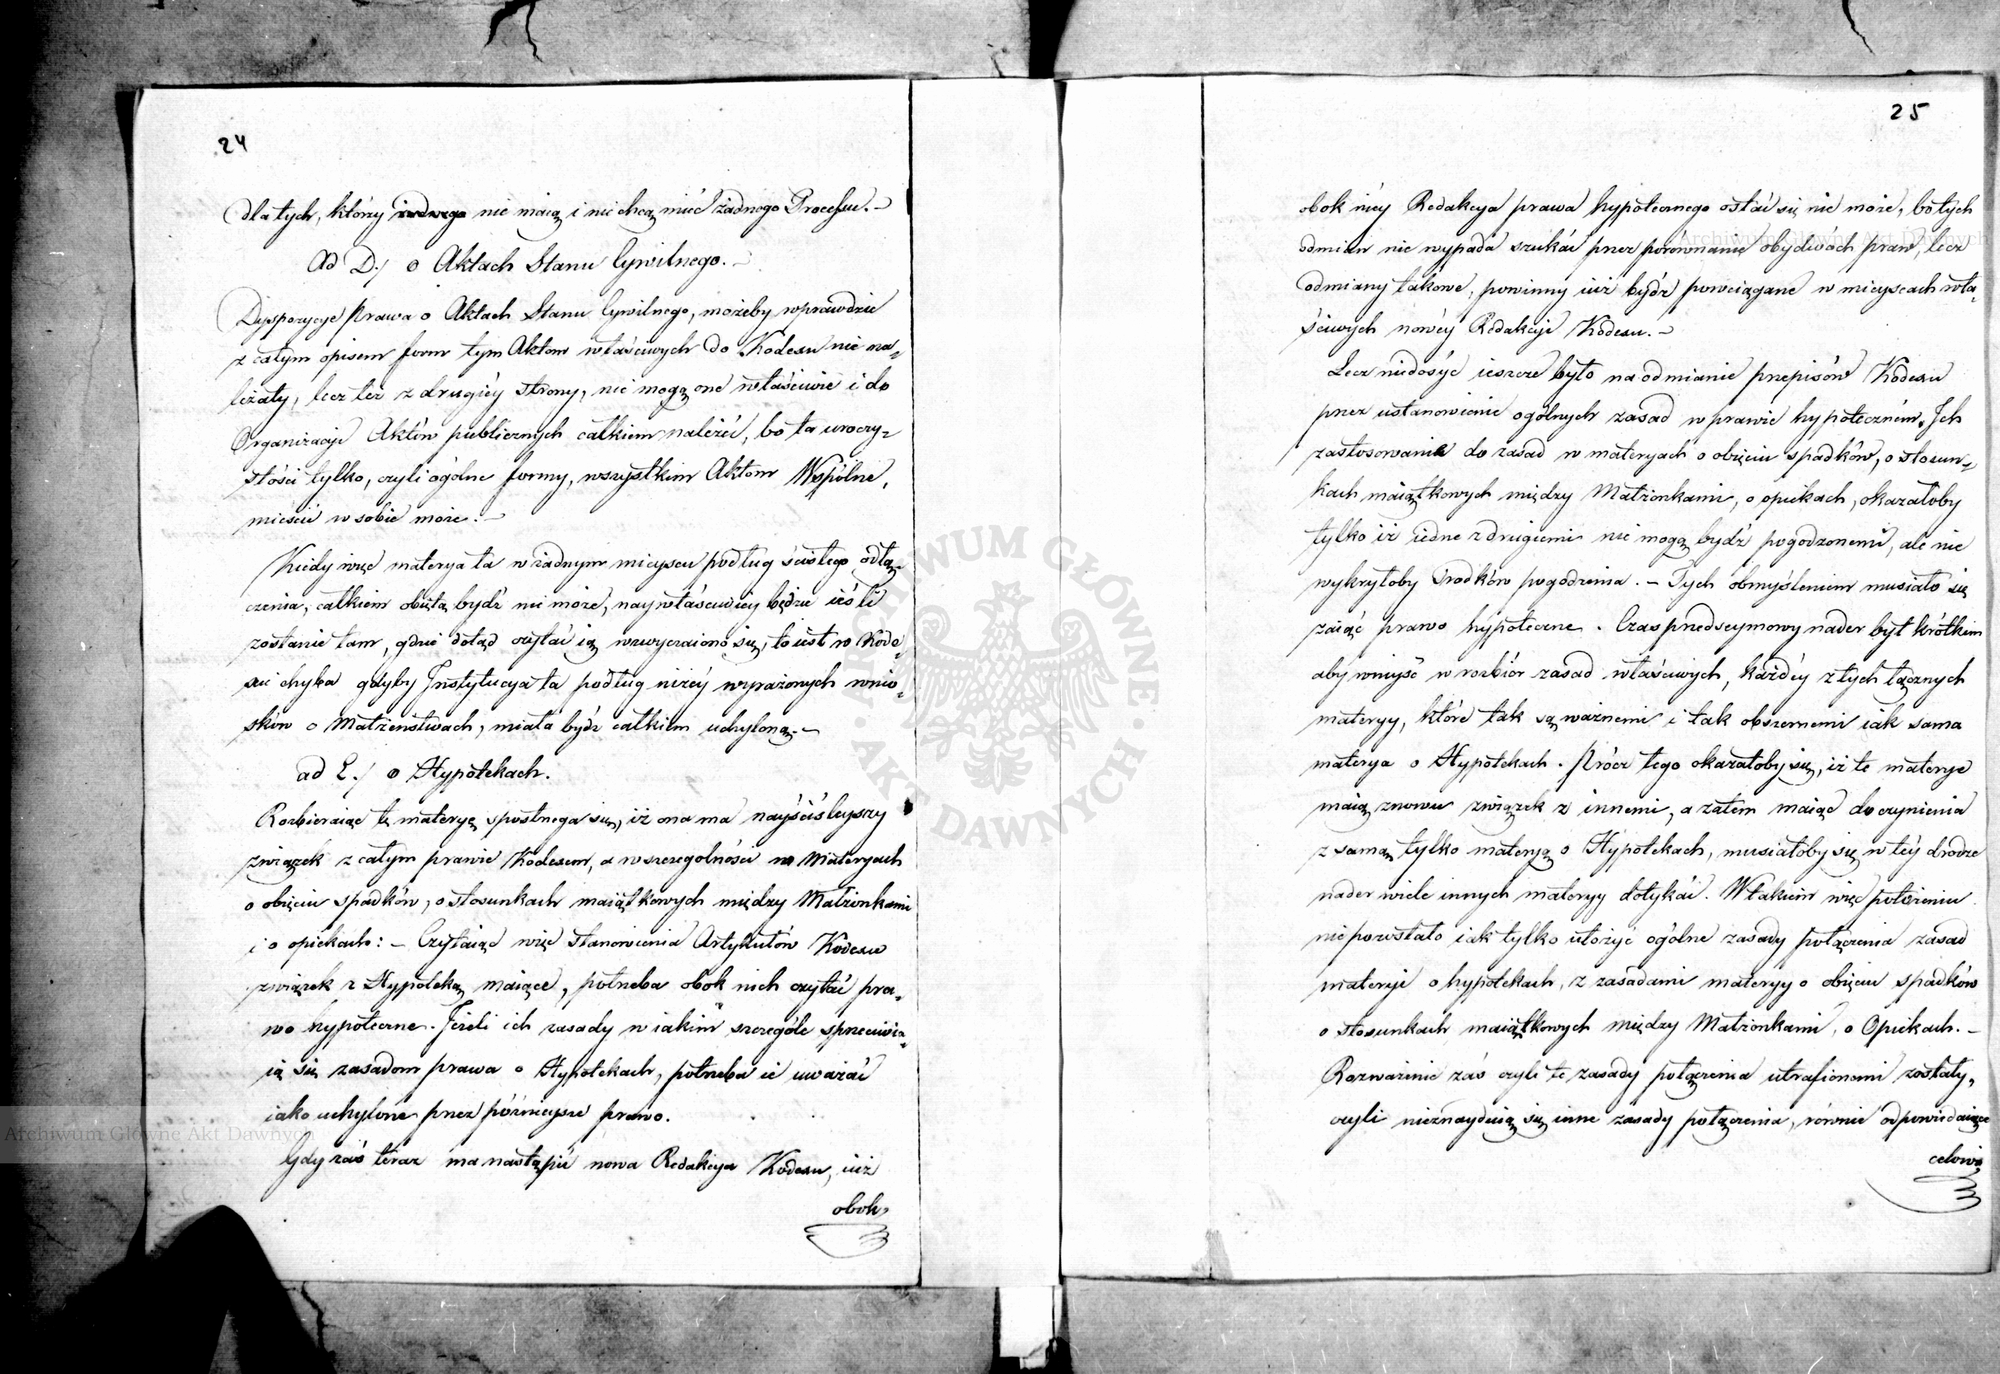 24
dla tych, którzy żadnego nie maią i nie chcą mieć żadnego Processu. –
Ad D./ o Aktach Stanu Cywilnego. –
Dyspozycye prawa o Aktach Stanu Cywilnego, możeby wprawdzie
z całym opisem form tym Aktom właściwych do Kodexu nie na-
leżały, lecz też z drugiéy strony, nie mogą one właściwie i do
Organizacyi Aktów publicznych całkiem należéć, bo ta uroczy-
stości tylko, czyli ogólne formy, wszystkim Aktom Wspólne,
mieścić w sobie może. –
Kiedy więc materya ta w żadnym mieyscu podług ścisłego odłą-
czenia, całkiem obiętą bydź nie może, naywłaściwiéy będzie ieśli
zostanie tam, gdzie dotąd czytać ią wzwyczaiono się, to iest w Kode-
xie chyba gdyby Instytucya ta podług niżéy wyrażonych wnio-
sków o Małżeństwach, miała bydź całkiem uchyloną. –
ad E./ o Hypotekach.
Rozbieraiąc tę materyę spostrzega się, iż ona ma nayściśleyszy
związek z całym prawie Kodexem, a w szczególności w Materyach
o obięciu spadków, o stosunkach maiątkowych między Małżonkami
i o opiekach: – Czytaiąc więc stanowienia Artykułów Kodexu
związek z Hypoteką maiące, potrzeba obok nich czytać pra-
wo hypoteczne. Jeżeli ich zasady w iakim szczególe sprzeciwia-
ią się zasadom prawa o Hypotekach, potrzeba ie uważać
iako uchylone przez późnieysze prawo.
Gdy zaś teraz ma nastąpić nowa Redakcya Kodexu, iuż
obok
25
obok niéy Redakcya prawa hypotecznego ostać się nie może, bo tych
odmian nie wypada szukać przez porównanie obydwóch praw, lecz
odmiany takowe, powinny iuż bydź powciągane w mieyscach wła-
ściwych nowéy Redakcyi Kodexu. –
Lecz niedosyć ieszcze było na odmianie przepisów Kodexu
przez ustanowienie ogólnych zasad w prawie hypoteczném. Ich
zastosowanie do zasad w materyach o obięciu spadków, o stosun-
kach maiątkowych między Małżonkami, o opiekach, okazałoby
tylko iż iedne z drugiemi nie mogą bydź pogodzonemi, ale nie
wykryłoby środków pogodzenia. – Tych obmyśleniem musiało się
zaiąć prawo hypoteczne. Czas przedseymowy nader był krótkim
aby wniyść w rozbiór zasad właściwych, każdéy z tych łącznych
materyy, które tak są ważnemi i tak obszernemi iak sama
materya o Hypotekach. Prócz tego okazałoby się, iż te materye
maią znowu związek z innemi, a zatem maiąc do czynienia
z samą tylko materyą o Hypotekach, musiałoby się w téy drodze
nader wiele innych materyy dotykać. W takiem więc położeniu
nie pozostało iak tylko ułożyć ogólne zasady połączenia zasad
materyi o hypotekach, z zasadami materyy o obięciu spadków
o stosunkach maiątkowych między Małżonkami, o Opiekach. –
Rozważenie zaś czyli te zasady połączenia utrafionemi zostały,
czyli nieznayduią się inne zasady połączenia, równie odpowiadaiące
celowi
Archiwum Główne Akt Dawnych
Archiwum Główne Akt Dawnych
ARCHIWUM GŁÓWNE AKT DAWNYCH